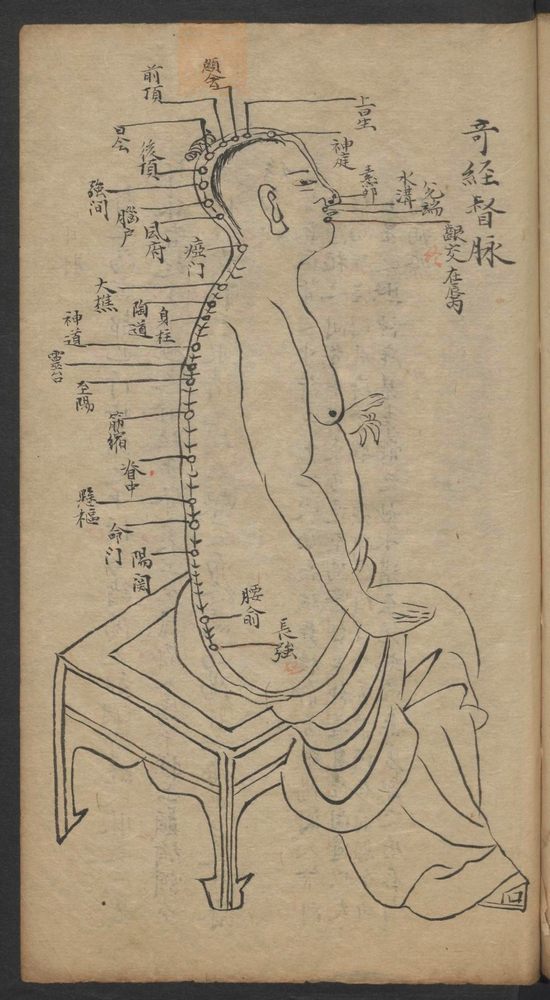 奇经督脉
齦交在唇内
兊端
水溝
素卯
神庭
上星
顖会
前頂
百会
後頂
強间
腦户
风府
瘂门
大椎
陶道
身柱
神道
靈台
至陽
筋缩
脊中
懸樞
命门
陽関
腰俞
長強